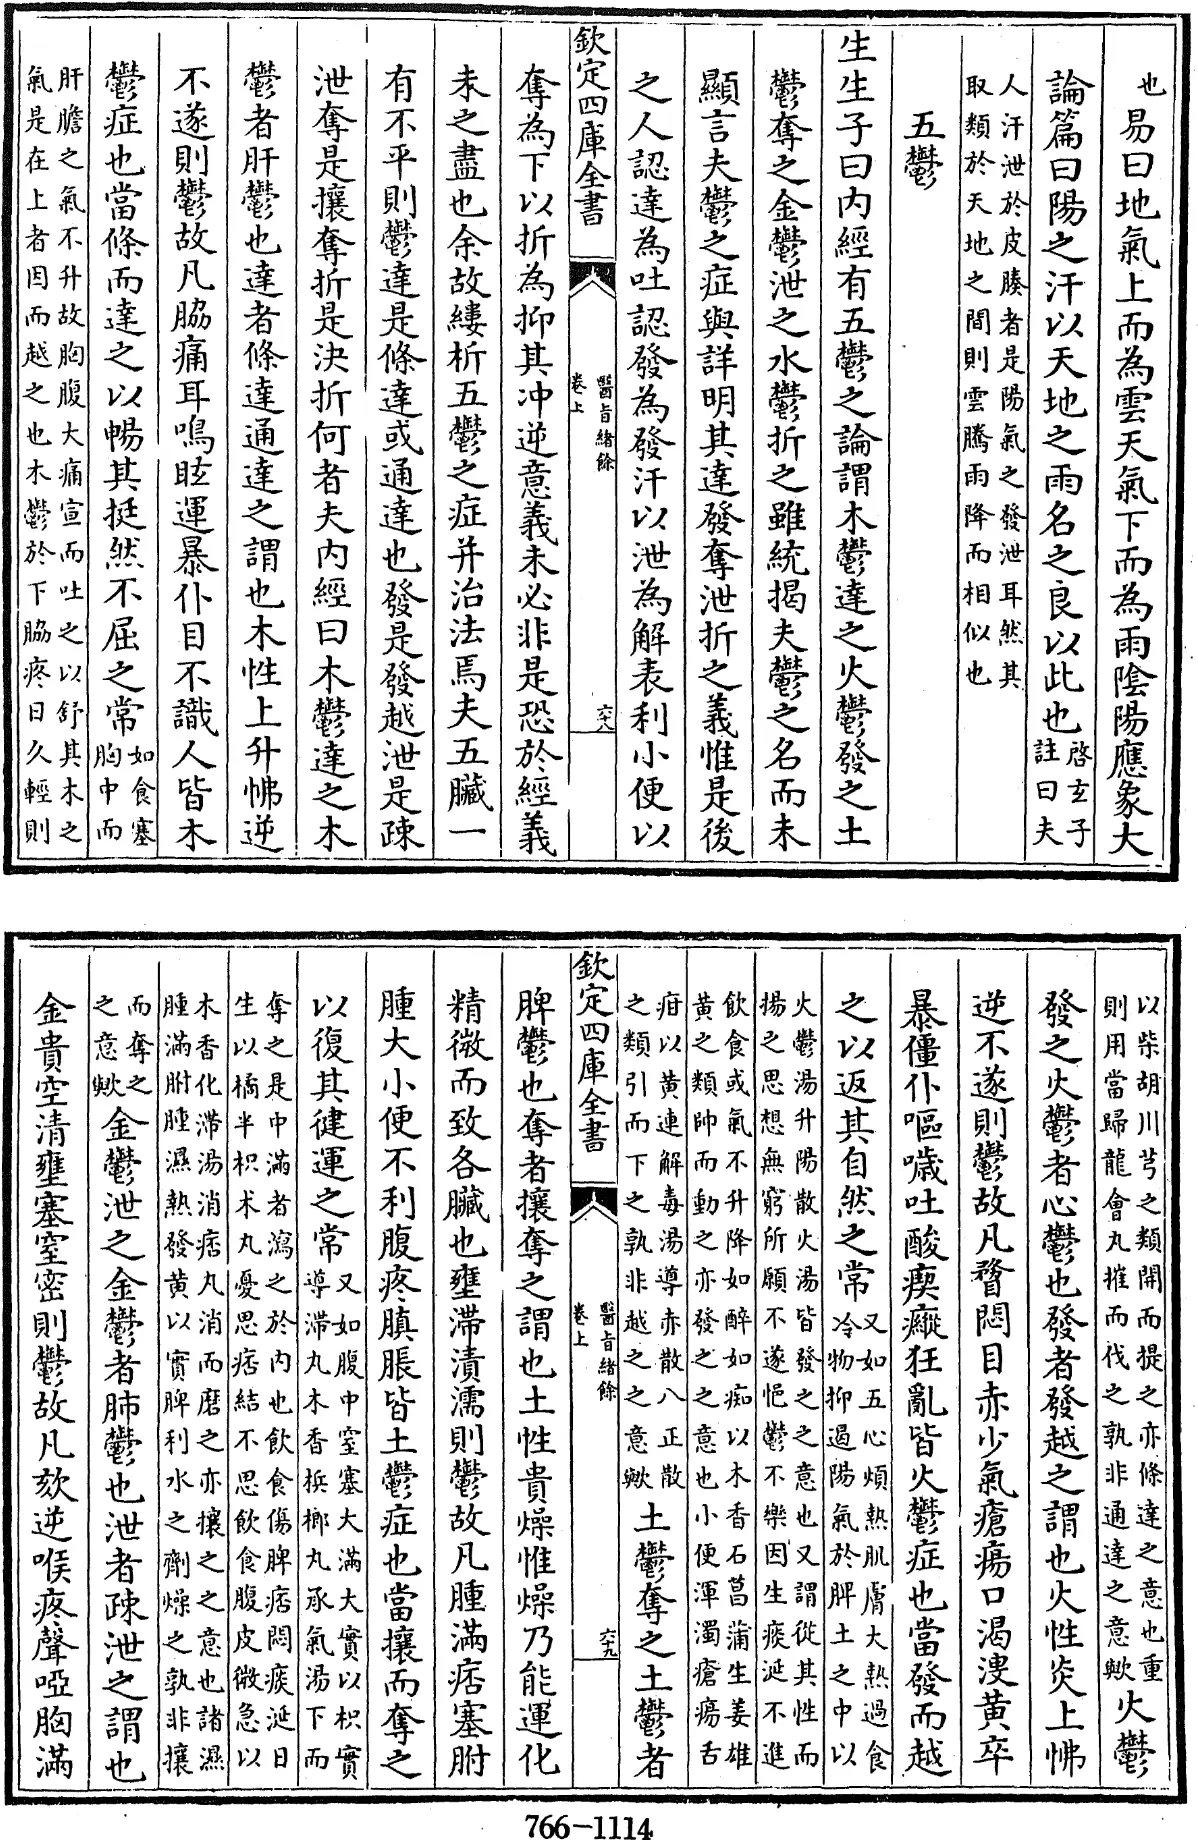 也易曰地氣上而為雲天氣下而為雨陰陽應象大
論篇曰陽之汗以天地之雨名之良以此也啓玄子註曰夫
人汗泄於皮腠者是陽氣之發泄耳然其
取類於天地之間則雲騰雨降而相似也
五鬱
生生子曰内經有五鬱之論謂木鬱達之火鬱發之土
鬱奪之金鬱泄之水鬱折之雖統揭夫鬱之名而未
顯言夫鬱之症與詳明其達發奪泄折之義惟是後
之人認達為吐認發為發汗以泄為解表利小便以
欽定四庫全書
醫旨緒餘
卷上
六八
奪為下以折為抑其冲逆意義未必非是恐於經義
未之盡也余故縷析五鬱之症并治法焉夫五臟一
有不平則鬱達是條達或通達也發是發越泄是疎
泄奪是攘奪折是決折何者夫内經曰木鬱達之木
鬱者肝鬱也達者條達通達之謂也木性上升怫逆
不遂則鬱故凡脇痛耳鳴眩運暴仆目不識人皆木
鬱症也當條而達之以暢其挺然不屈之常如食塞胸中而
肝膽之氣不升故胸腹大痛宣而吐之以舒其木之
氣是在上者因而越之也木鬱於下脇疼日久輕則
以柴胡川芎之類開而提之亦條達之意也重
則用當歸龍會丸摧而伐之孰非通達之意歟火鬱
發之火鬱者心鬱也發者發越之謂也火性炎上怫
逆不遂則鬱故凡瞀悶目赤少氣瘡瘍口渴溲黄卒
暴僵仆嘔噦吐酸瘈瘲狂亂皆火鬱症也當發而越
之以返其自然之常又如五心煩熱肌膚大熱過食冷物抑遏陽氣於脾土之中以
火鬱湯升陽散火湯皆發之之意也又謂從其性而
揚之思想無窮所願不遂悒鬱不樂因生痰涎不進
飲食或氣不升降如醉如痴以木香石菖蒲生姜雄
黄之類帥而動之亦發之之意也小便渾濁瘡瘍舌
疳以黄連解毒湯導赤散八正散
之類引而下之孰非越之之意歟土鬱奪之土鬱者
欽定四庫全書
醫旨緒餘
卷上
六九
脾鬱也奪者攘奪之謂也土性貴燥惟燥乃能運化
精微而致各臟也壅滯漬濡則鬱故凡腫滿痞塞胕
腫大小便不利腹疼䐜脹皆土鬱症也當攘而奪之
以復其健運之常又如腹中窒塞大滿大實以枳實導滯丸木香梹榔丸承氣湯下而
奪之是中滿者瀉之於内也飲食傷脾痞悶痰涎日
生以橘半枳术丸憂思痞結不思飲食腹皮微急以
木香化滯湯消痞丸消而磨之亦攘之之意也諸濕
腫滿胕腫濕熱發黄以實脾利水之劑燥之孰非攘
而奪之之意歟金鬱泄之金鬱者肺鬱也泄者疎泄之謂也
金貴空清壅塞窒密則鬱故凡欬逆喉疼聲啞胸滿
766-1114